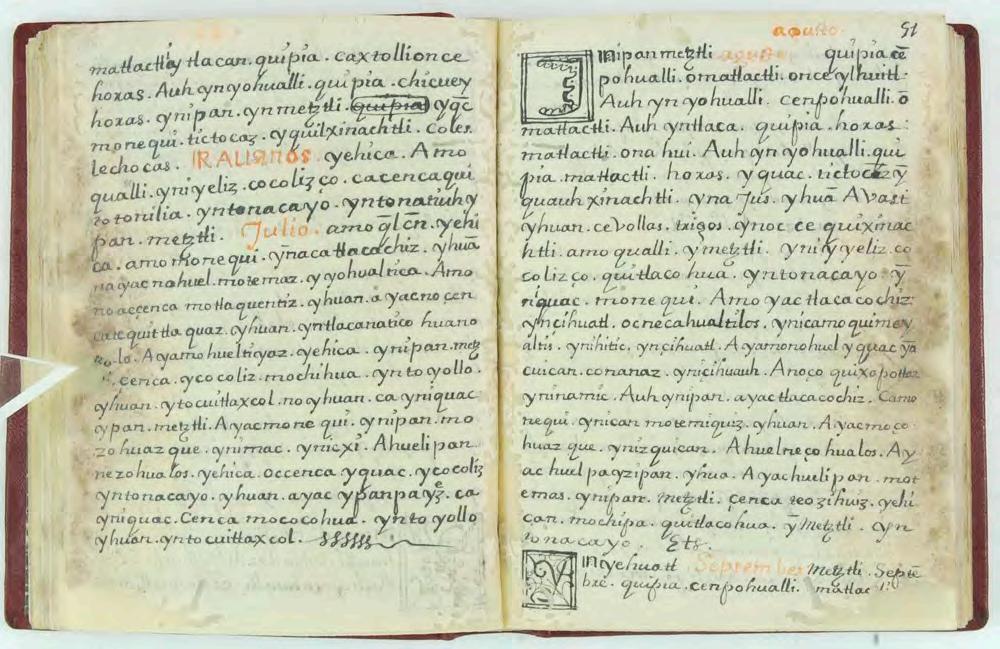 matlactly tlacan. quipia. caxtollionce
horas. Auh ynyohualli. quipia. chicuey
horas. ynipan. ynmetztli. quipia yqc
monequi. tictocaz. yquilxinachtli. coles
lechocas. RAUANOS. yehica. Amo
qualli. yniyeliz. cocolizço. cacencaqui
totonilia. yntonacayo. yntonatiuh y
pan. metztli. Julio. amo q̄l cn̄. yehi
ca. amo monequi. ynacatlacachiz. yhuā
nayac nohuel. motemaz. yyohualtica. Amo
noaccenca motlaquentiz. yhuan. ayacnocen
catequitlaquaz. yhuan. yntlacanatico huano
lo. Ayamohueltiyaz. yehica. ynipan. metz
cenca. ycocoliz. mochihua. ynto yollo.
yhuan. ytocuitlaxcol. noyhuan. ca yniquac
ypan. metztli. Ayacmonequi. ynipan. mo
zohuazque. ynimac. ynicxi. Ahuelipan
nezohualos. yehica. occenca yquac. ycocoliz
yntonacayo. yhuan. ayac ypanpayz. ca
yniquac. Cenca mococohua. ynto yollo
yhuan. yntocuitlaxcol.
agusto. 51
Inipanmetztli agusto quipia cē
pohualli. omatlactli. once ylhuitl.
Auh yn yohualli. cenpohualli. ō
matlactli. Auh yntlaca. quipia. horas:
matlactli. onahui. Auh ynyohualli. qui
pia. matlactli. horas. yquac. tictocaz y
quauhxinachtli. yna Jus. yhuā Avast
yhuan. cevollas. trigos. ynoc ce quixinac
htli. amo qualli. ymetztli. yniyyeliz. co
colizço. quitlacohua. yntonacayo. ȳ
niquac. monequi. Amo yactlacacochiz:
yncihuatl. ocnecahualtilos. ynicamoquimey
altis. ynihitic. yncihuatl. Ayamonohuel yquac ya
cuican. conanaz. ynicihuauh. Anoço quixopotlaz
yninamic. Auh ynipan. ayactlacacochiz. Camo
nequi. ynican motemiquiz. yhuan. Ayacmoço
huazque. ynizquican. Ahuelneçohualos. Ay
ac huel payzipan. yhua. Ayachuelipan. mot
emas. ynipan. Metztli. çenca teozihuiz. yehi
can. mochipa. quitlacohua. ȳ Metztli. yn
tonacayo. Ets.
Inyehuatl Septembes Metztli. Septē
bre. quipia. cenpohualli. matlac